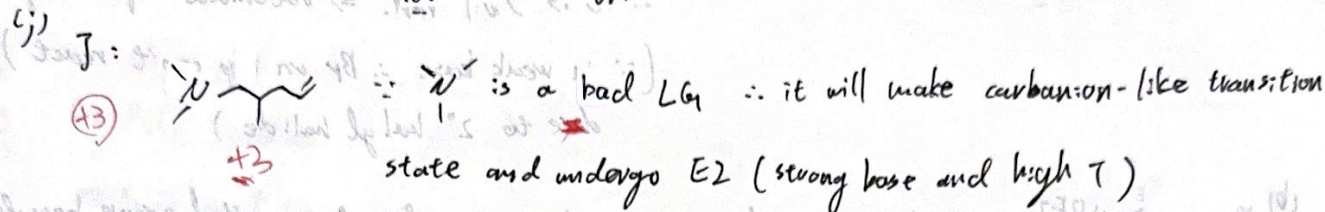 (j)
J: N ∵ N is a bad LG ∴ it will make carbanion-like transition
+3
+3
state and undergo E2 (strong base and high T)